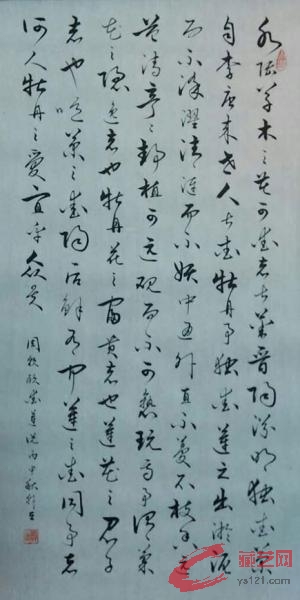 水陆草木之花可爱者甚蕃晋陶渊明独爱菊
自李唐来世人甚爱牡丹予独爱莲之出淤泥
而不染濯清涟而不妖中通外直不蔓不枝香远
益清亭亭静植可远观而不可亵玩焉予谓菊
花之隐逸者也牡丹花之富贵者也莲花之君子
者也噫菊之爱陶后鲜有闻莲之爱同予者
何人牡丹之爱宜乎众矣
周敦颐爱莲说丙申秋
藏艺网
ys121.com